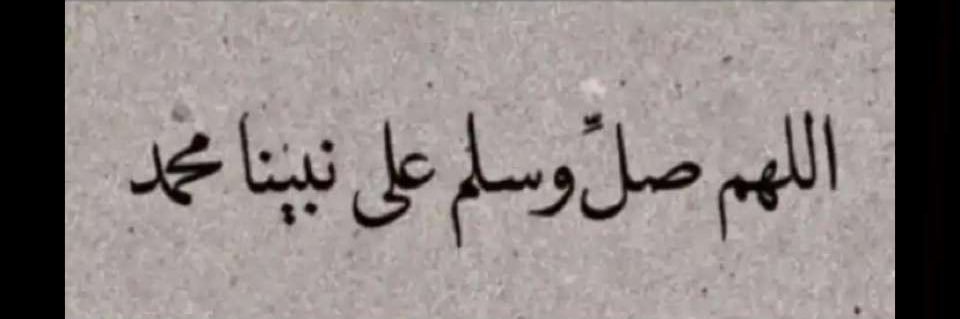 اللهم صلً وسلم على نبينا محمد